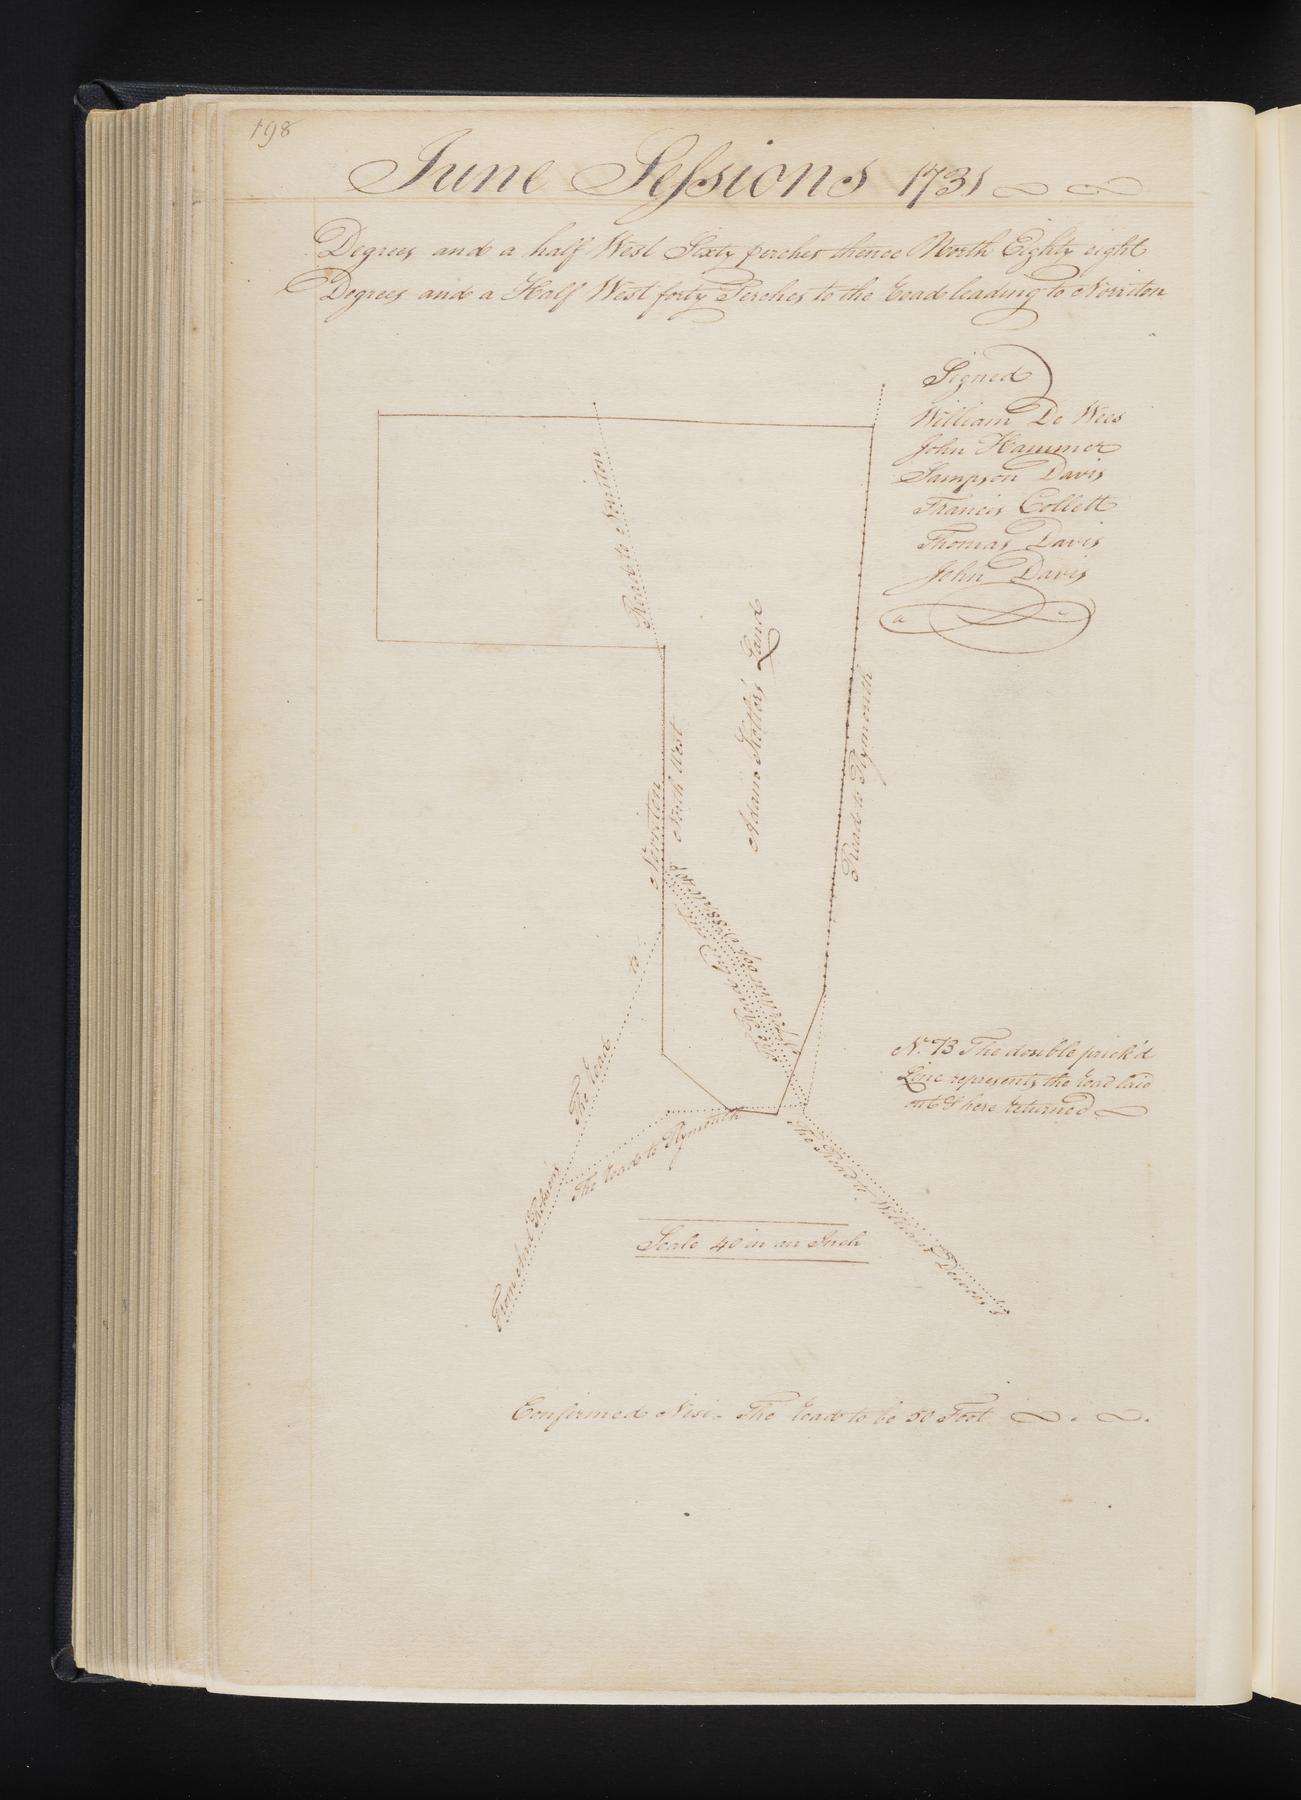 198
June Sessions 1731
Degrees and a half West Sixty perches thence North Eighty eight
Degrees and a Half West forty Perches to the Road leading to Norriton
Signed
William De Wees
John Hammer
Sampson Davis
Francis Collett
Thomas Davis
John Davis
Road to Noriton
Adam Kollors Land
Road to Plymouth
Norriton
North West
to
The Road
N. B The double prick'd
Line represents the road laid
out & here returned
The road to Plymouth
The Road to William Dewees's
From
Scale 40 in an Inch
Confirmed Nisi. The road to be 50 Foot